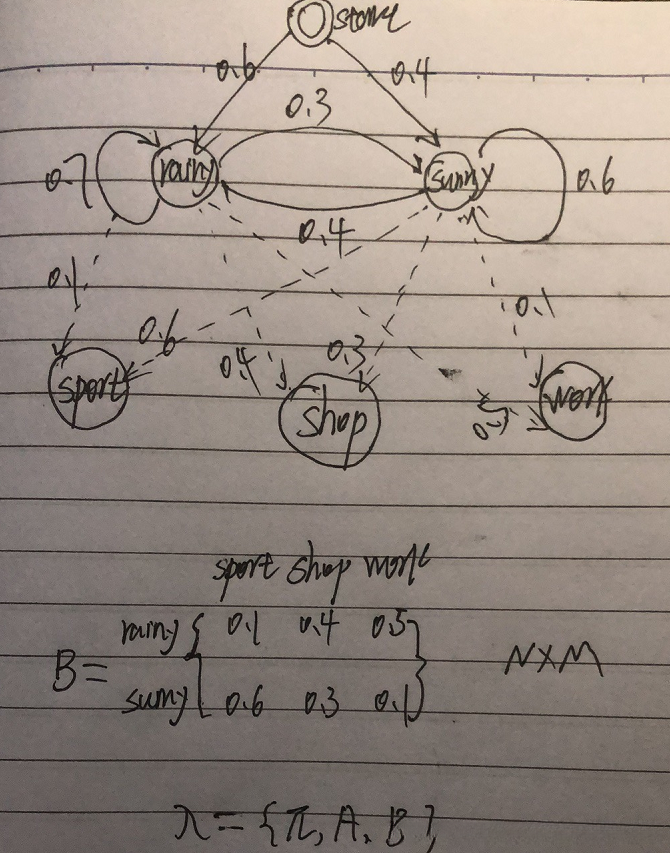 start
0.6 0.4
0.3
0.7 rainy sunny 0.6
0.4
0.1 0.1
0.6 0.4 0.3
sport shop work
0.5
sport shop work
rainy 0.1 0.4 0.5
B= N×M
sunny 0.6 0.3 0.1
λ={π, A, B}